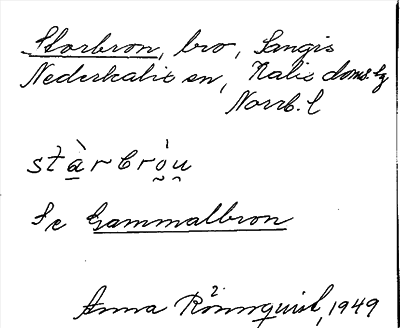 Storbron, bro, Sangis
Nederkalix sn, Kalix doms. lg
Norrb. l
stàrbròu
Se Gammalbron
Anna Rönnquist, 1949